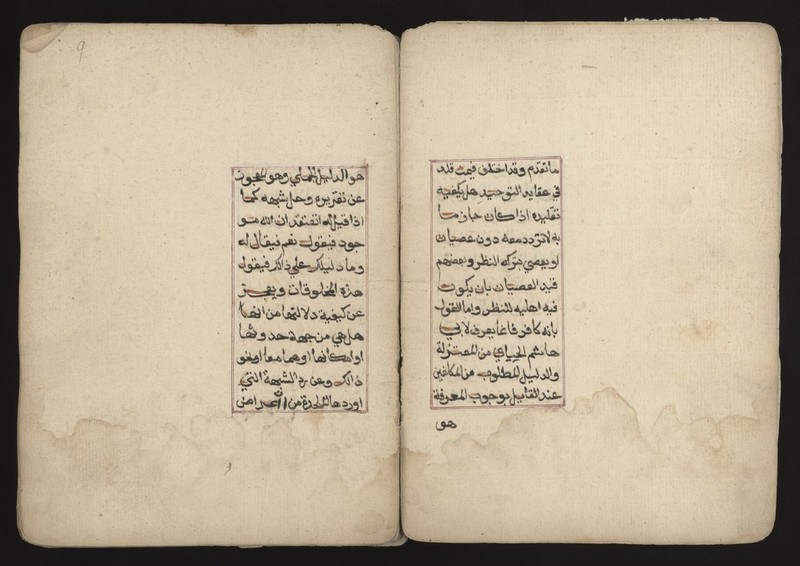 ما تقدم وقد اختلف فيمن قلد
في عقايد التوحيد هل يكفيه
تقليده اذا كان جازما
به لا تردد معه دون عصيان
او يعصي بتركه النظر وبعضهم
قيد العصيان بان يكون
فيه اهليه للنظر واما القول
بانه كافر فانما يعرف لابي
هاشم الجباءي من المعتزلة
والدليل المطلوب من المكلفين
عند القايل بوجوب المعرفة
هو
9
هو الدليل الجملي وهو المعجوز
عن تقريره وحل شبهه كما
اذا قيل له اتعتقد ان الله مو
جود فيقول نعم فيقال له
وما دليلك علي ذالك فيقول
هذه المخلوقات ويعجز
عن كيفية دلالتها من انها
هل هي من جهة حدوثها
او امكانها او هما معا او نحو
ذالك وعن رد الشبهة التي
اوردها الملحدة من ان اعراض